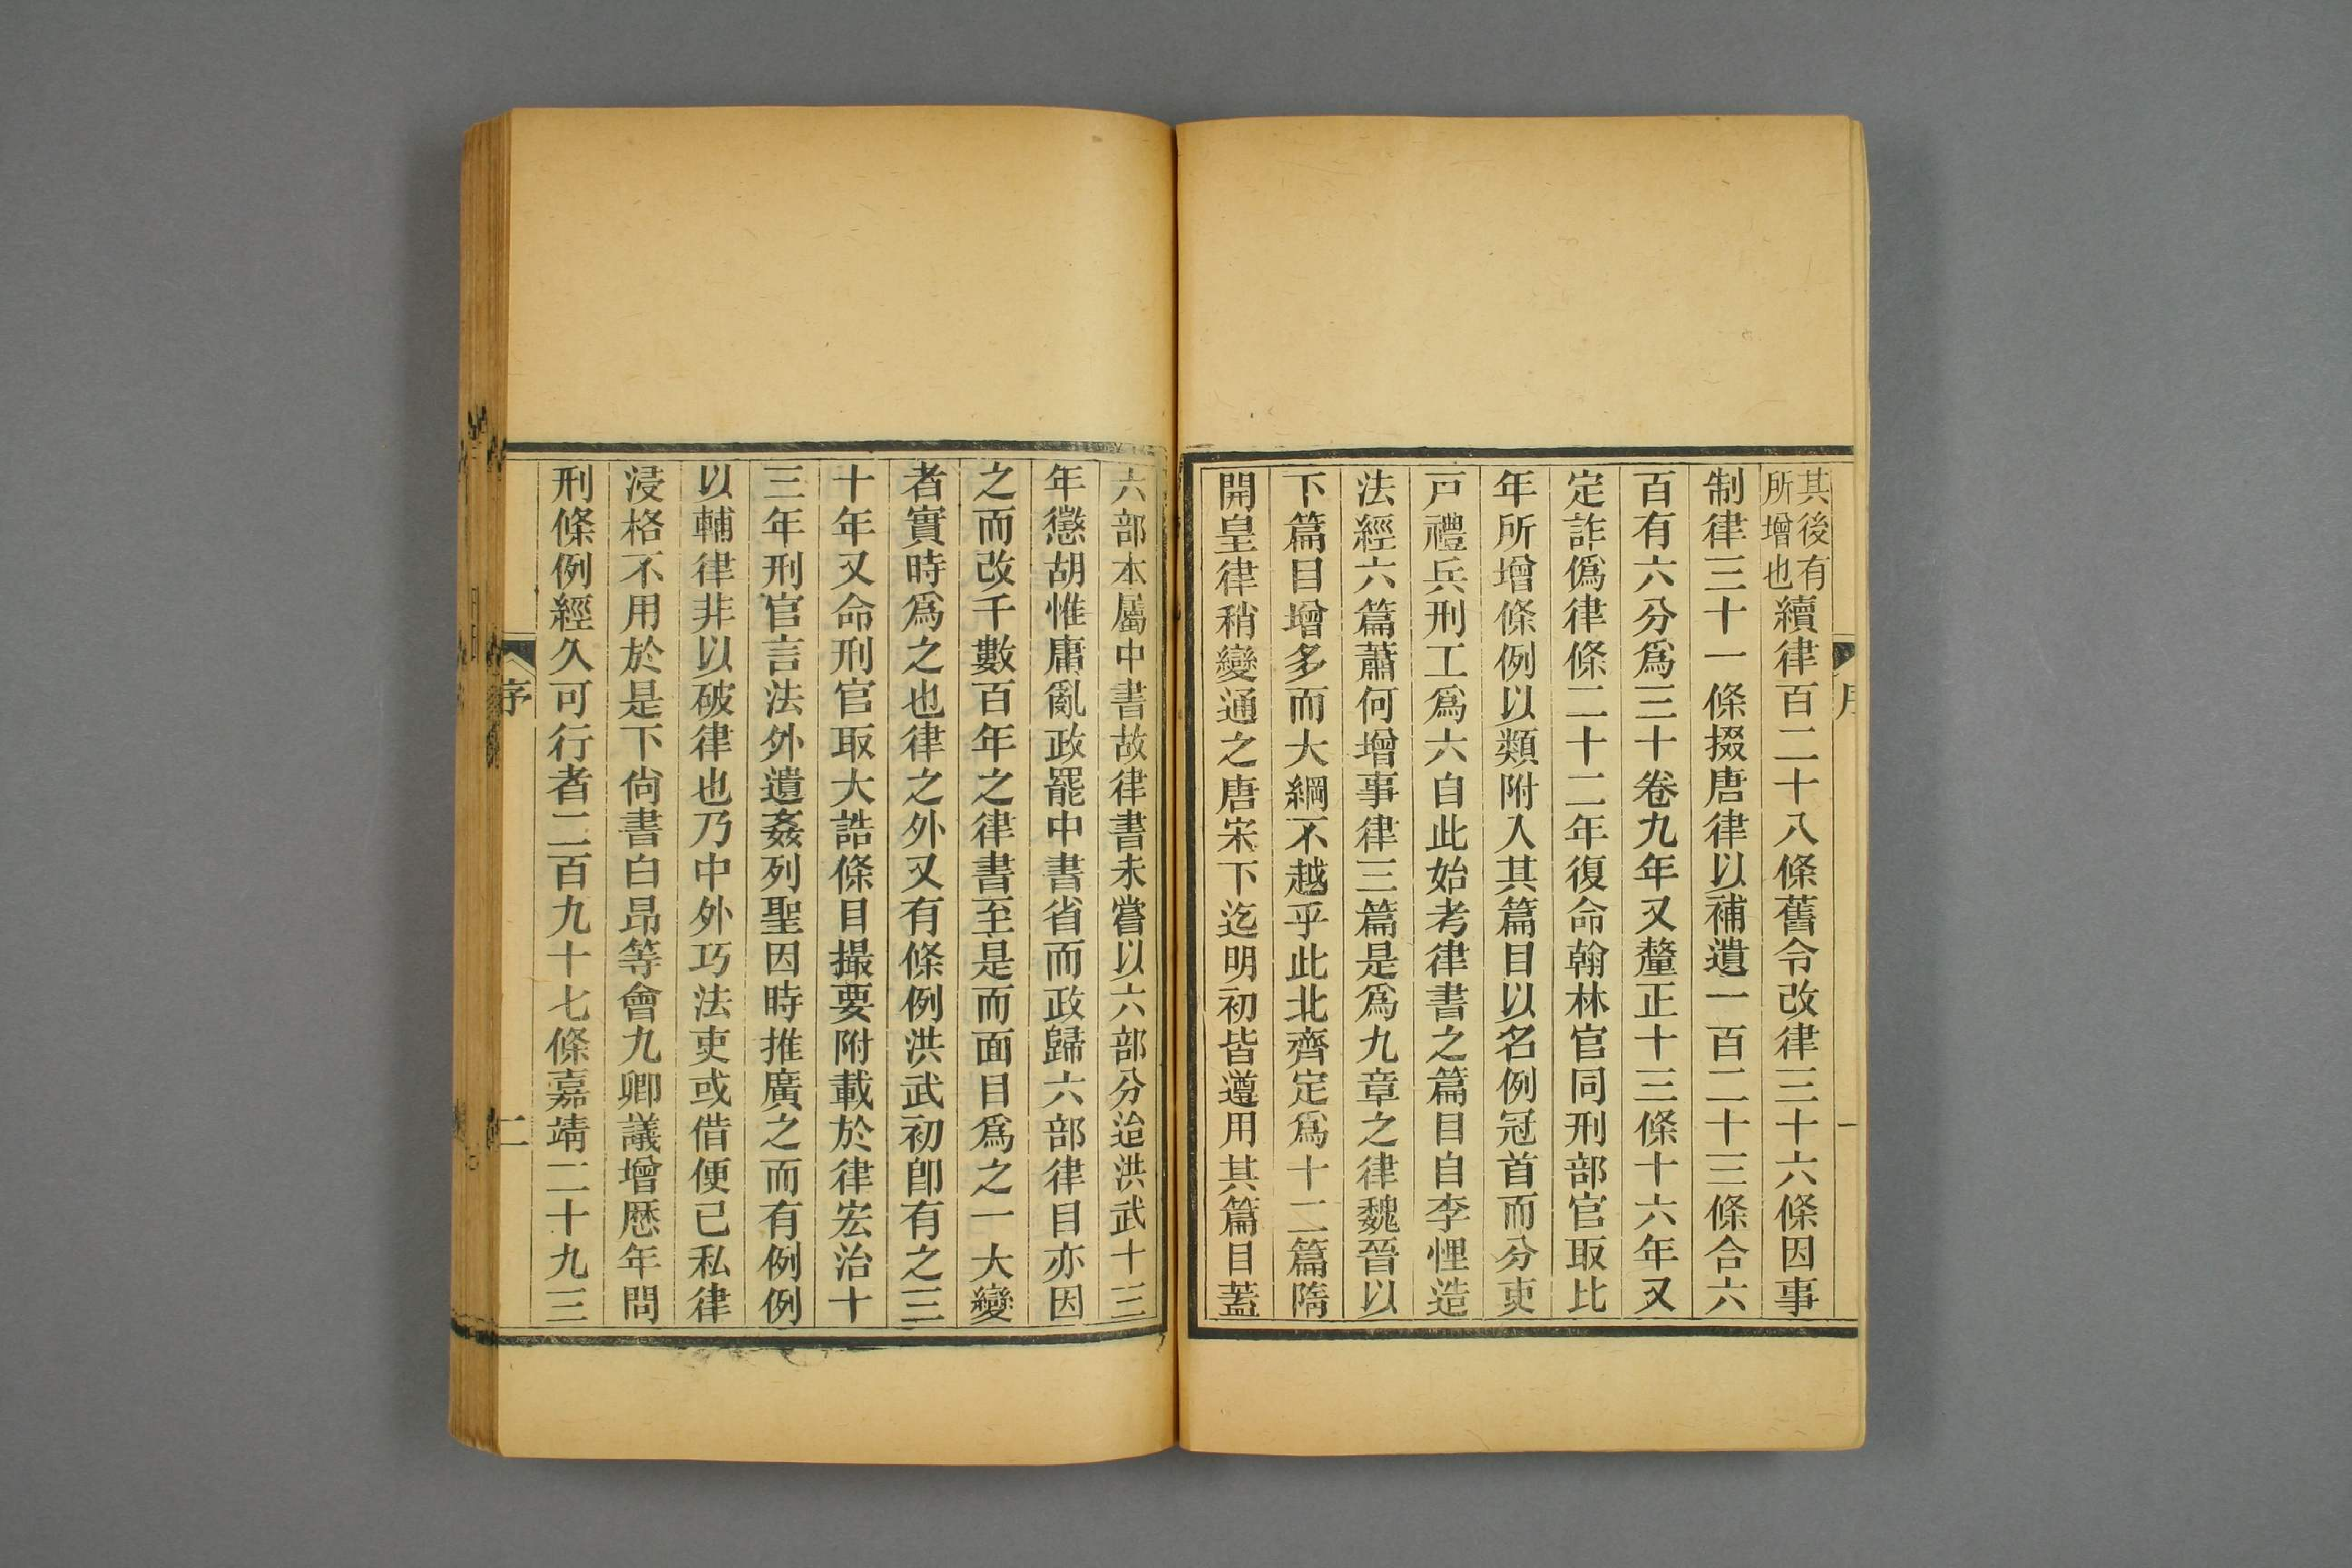 序
一
其後有
所增也
續律百二十八條舊令改律三十六條因事
制律三十一條掇唐律以補遺一百二十三條合六
百有六分爲三十卷九年又釐正十三條十六年又
定詐僞律條二十二年復命翰林官同刑部官取比
年所增條例以類附入其篇目以名例冠首而分吏
戸禮兵刑工爲六自此始考律書之篇目自李悝造
法經六篇蕭何增事律三篇是爲九章之律魏晉以
下篇目增多而大綱不越乎此北齊定爲十二篇隋
開皇律稍變通之唐宋下迄明初皆遵用其篇目蓋
六部本屬中書故律書未嘗以六部分治洪武十三
年懲胡惟庸亂政罷中書省而政歸六部律目亦因
之而改千數百年之律書至是而面目爲之一大變
者實時爲之也律之外又有條例洪武初卽有之三
十年又命刑官取大誥條目撮要附載於律宏治十
三年刑官言法外遺姦列聖因時推廣之而有例例
以輔律非以破律也乃中外巧法吏或借便己私律
浸格不用於是下尙書白昂等會九卿議增歷年問
刑條例經久可行者二百九十七條嘉靖二十九三
序
二